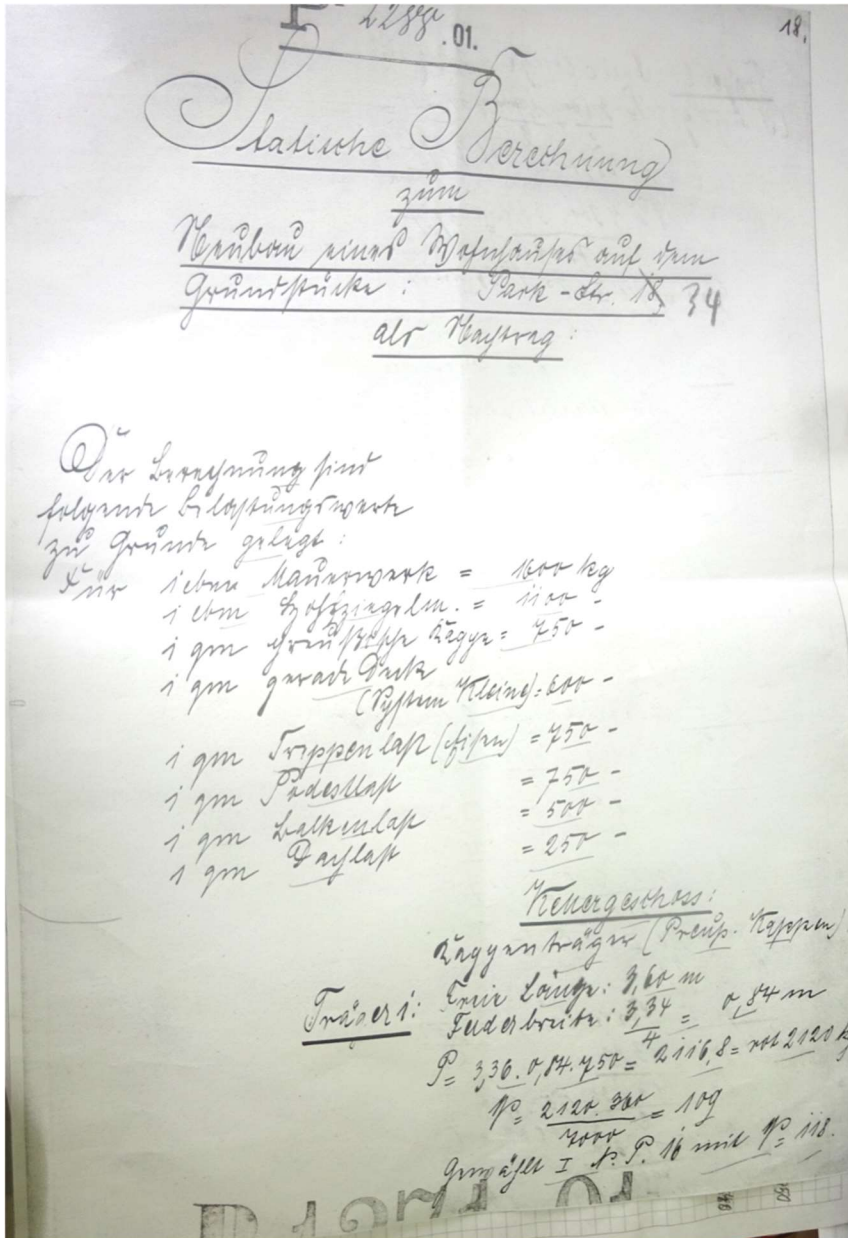 P 2288.01.
18.
Statische Berechnung
zum
Neubau eines Wohnhauses auf dem
Grundstücke: Park-Str. 18, 34
als Nachtrag:
Der Berechnung sind
folgende Belastungswerte
zu Grunde gelegt:
Für 1 cbm Mauerwerk = 1600 kg
1 cbm Hohlziegelm. = 1100 -
1 qm preußische Kappe = 750 -
1 qm gerade Deck
(System Kleine) = 600 -
1 qm Treppenlast (Eisen) = 750 -
1 qm Podestlast = 750 -
1 qm Balkenlast = 500 -
1 qm Dachlast = 250 -
Kellergeschoss:
Kappenträger (Preuß. Kappen)
Träger 1: Freie Länge: 3,60 m
Felderbreite: 3,34/4 = 0,84 m
P = 3,36 . 0,84 . 750 = 2116,8 = rot 2120 k
W = 2120 . 360/7000 = 109
Gewählt I N. P. 16 mit W = 118.